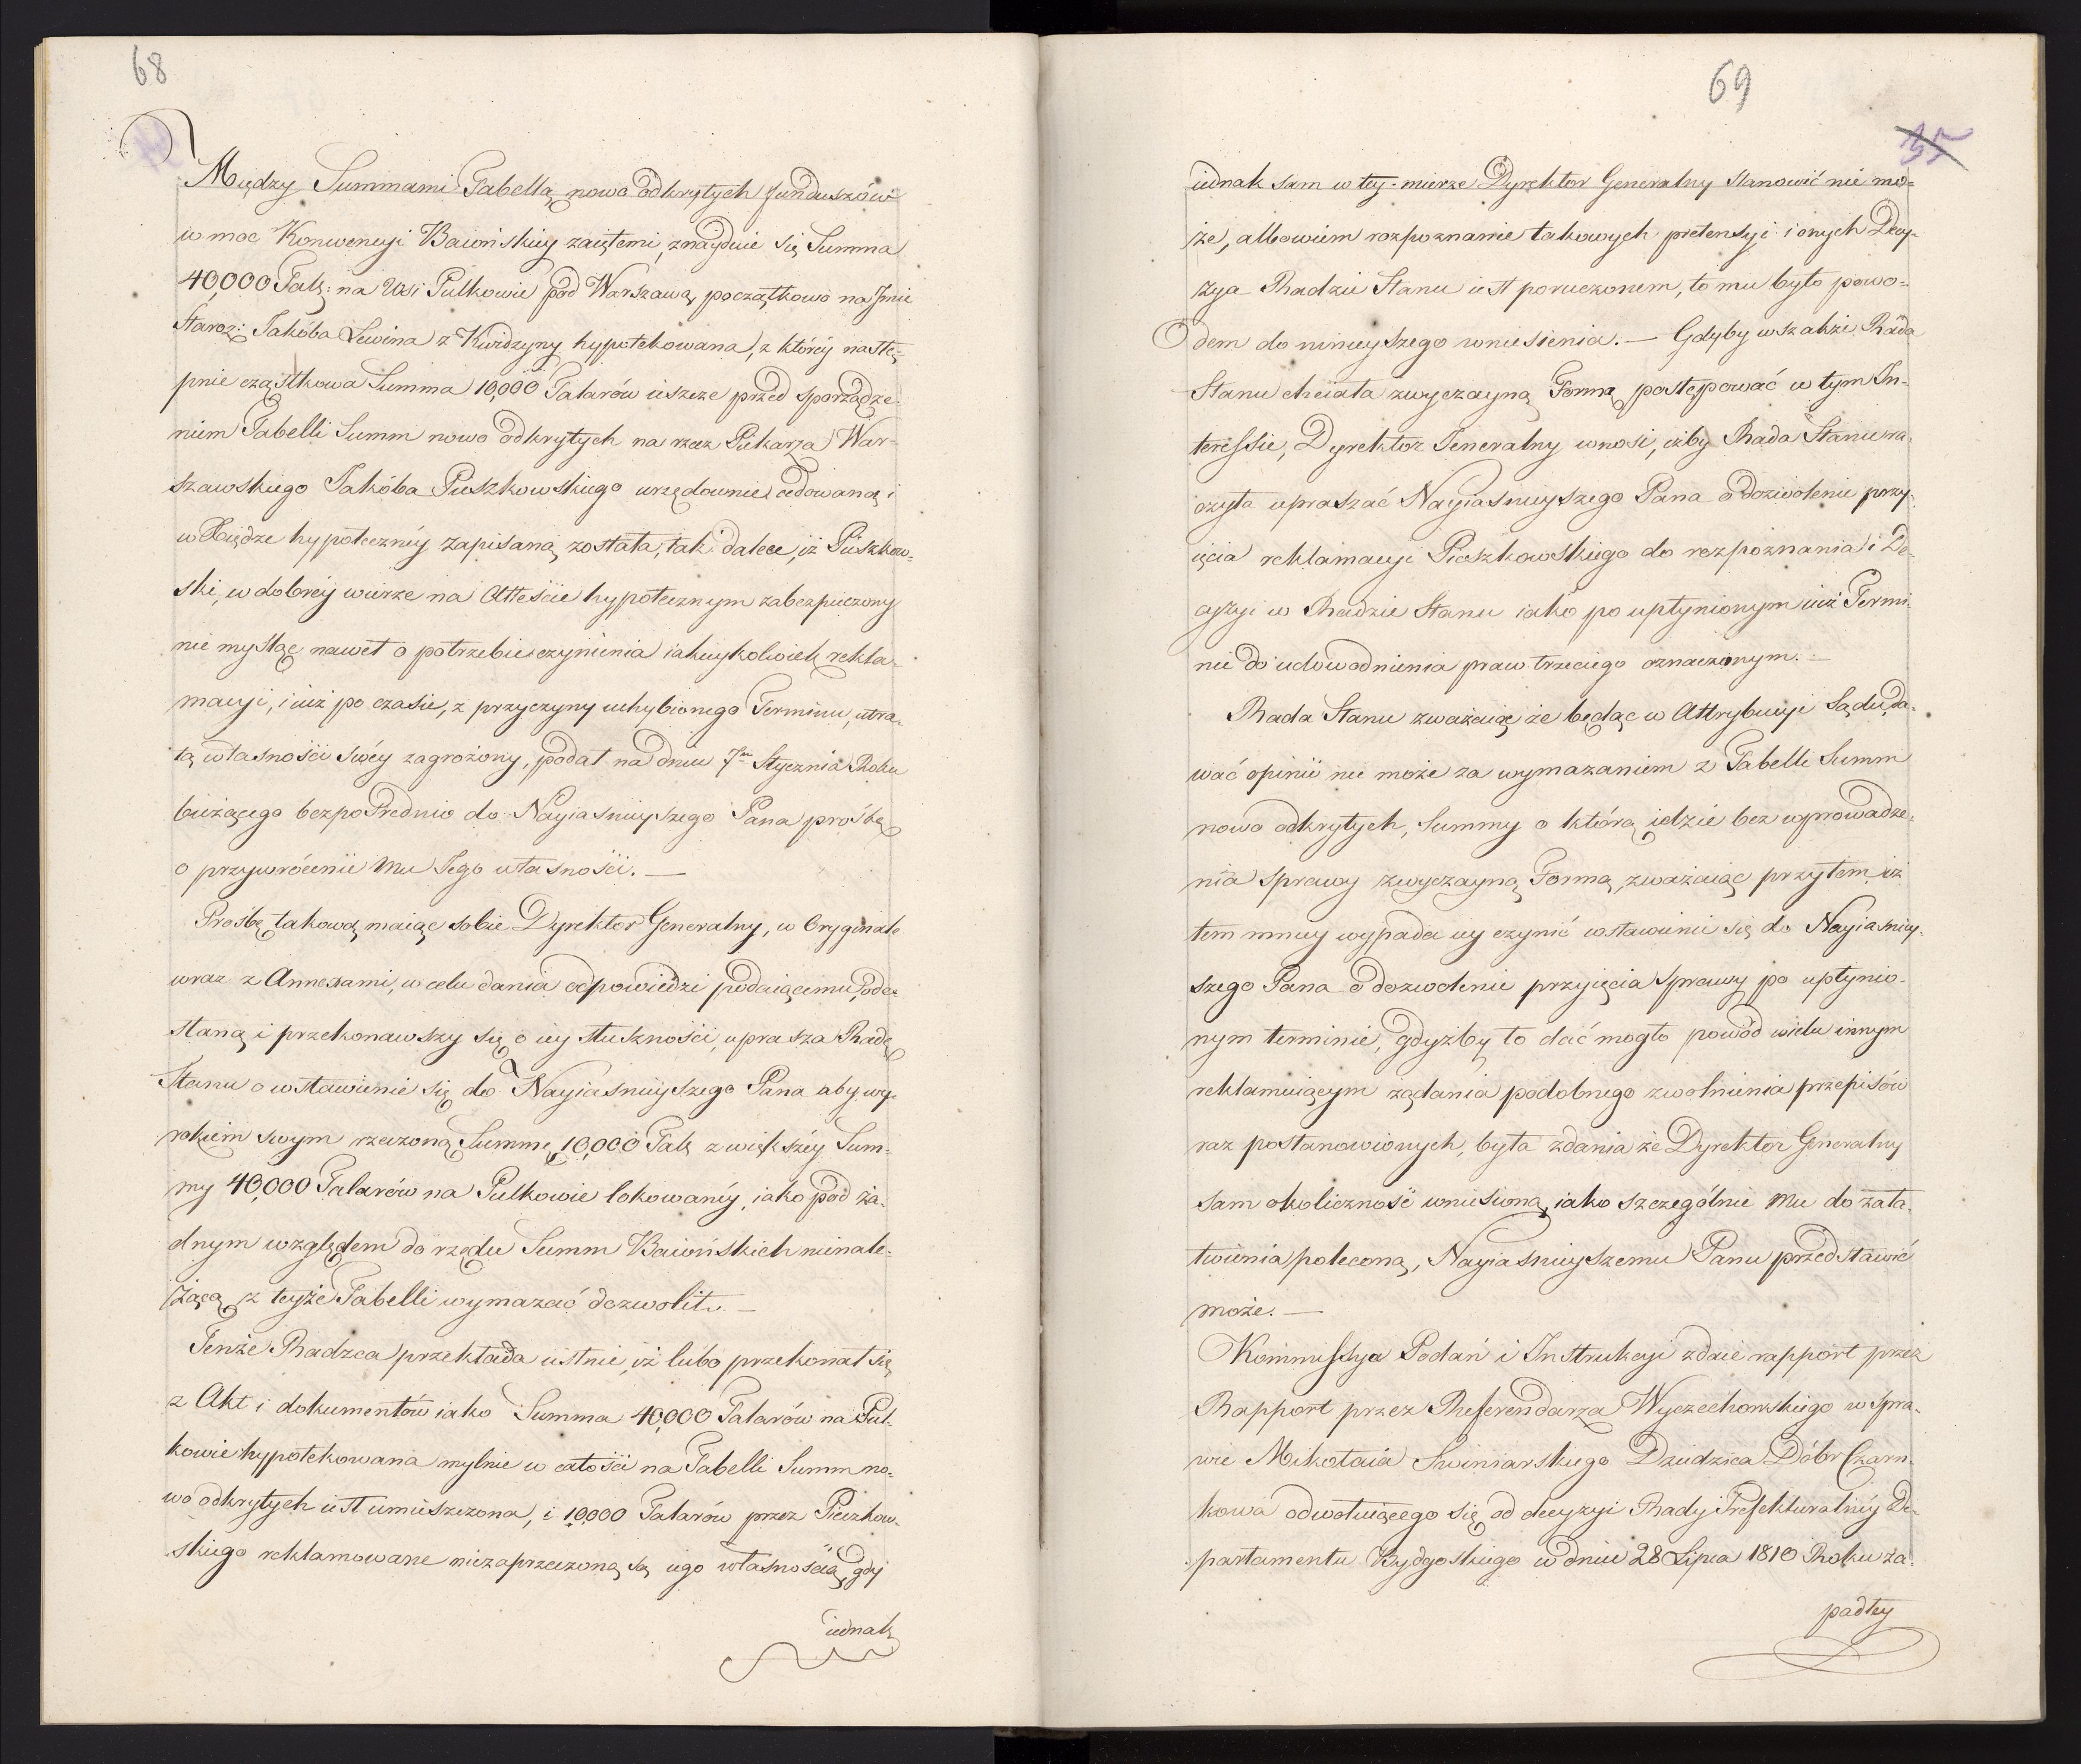 68
Między Summami Tabellą nowo odkrytych funduszów
w moc Konwencyi Baiońskiey zaiętemi, znayduie się Summa
40,000 Talr: na Wsi Pulkowie pod Warszawą początkowo na Jmie
Staroz: Jakóba Lewina z Kwidzyny hypotekowana, z którey nastę-
pnie cząstkowa Summa 10,000 Talarów ieszcze przed sporządze-
niem Tabelli Summ nowo odkrytych na rzecz Piekarza War-
szawskiego Jakóba Pieszkowskiego urzędownie cedowaną i
w Xiędze hypoteczney zapisaną została, tak dalece, iż Pieszkow-
ski, w dobrey wierze na Atteście hypotecznym zabezpieczony
nie myśląc nawet o potrzebie czynienia iakieykolwiek rekla-
macyi, i iuż po czasie, z przyczyny uchybionego Terminu, utra-
tą własności swéy zagrożony, podał na dniu 7m Stycznia Roku
bieżącego bezpośrednio do Nayiaśnieyszego Pana prośbę
o przywrócenie mu Jego własności. —
Prośbę takową maiąc sobie Dyrektor Generalny, w Oryginale
wraz z Annexami, w celu dania odpowiedzi podaiącemu, ode-
słaną i przekonawszy się o iey słuszności, uprasza Radę
Stanu o wstawienie się do Nayiaśnieyszego Pana aby wy-
rokiem swym rzeczoną Summę 10,000 Talr z większéy Sum-
my 40,000 Talarów na Pulkowie lokowanéy, iako pod ża-
dnym względem do rzędu Summ Baiońskich nienale-
żącą z teyże Tabelli wymazać dozwolił. —
Tenże Radzca przekłada ustnie, iż lubo przekonał się
z Akt i dokumentów iako Summa 40,000 Talarów na Pul-
kowie hypotekowana mylnie w całości na Tabelli Summ no-
wo odkrytych iest umieszczona, i 10,000 Talarów przez Pieszkow-
skiego reklamowane niezaprzeczoną są iego własnością, gdy
iednak
69
35
iednak sam w tey mierze Dyrektor Generalny stanowić nie mo-
że, albowiem rozpoznanie takowych pretensyi i onych Decy-
zya Radzie Stanu iest poruczonem, to mu było powo-
dem do ninieyszego wniesienia. — Gdyby wszakże Rada
Stanu chciała zwyczayną Formą postępować w tym In-
teressie, Dyrektor Jeneralny wnosi, iżby Rada Stanu ra-
czyła upraszać Nayiaśnieyszego Pana o dozwolenie przy-
ięcia reklamacyi Pieszkowskiego do rozpoznania i De-
cyzyi w Radzie Stanu iako po upłynionym iuż Termi-
nie do udowodnienia praw trzeciego oznaczonym. —
Rada Stanu zważaiąc że będąc w Attrybucyi Sądu, da-
wać opinii nie może za wymazaniem z Tabelli Summ
nowo odkrytych, Summy o którą idzie bez wprowadze-
nia sprawy zwyczayną Formą, zważaiąc przytem iż
tem mniey wypada iey czynić wstawienie się do Nayiaśniey-
szego Pana o dozwolenie przyięcia sprawy po upłynio-
nym terminie, gdyżby to dać mogło powód wielu innym
reklamuiącym żądania podobnego zwolnienia przepisów
raz postanowionych, była zdania że Dyrektor Generalny
sam okoliczność wniesioną, iako szczególnie mu do zała-
twienia poleconą, Nayiaśnieyszemu Panu przedstawić
może. —
Kommissya Podań i Instrukcyi zdaie rapport przez
Rapport przez Referendarza Wyczechowskiego w spra-
wie Mikołaia Swiniarskiego Dziedzica Dóbr Czarn-
kowa odwołuiącego się od decyzyi Rady Prefekturalnéy De-
partamentu Bydgoskiego w dniu 28 Lipca 1810 Roku za-
padłey